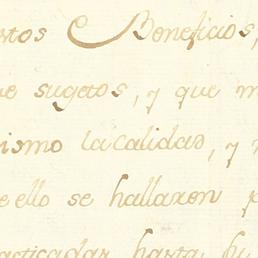 stos Beneficios,
e sugetos, y que m
ismo la calidad, y
e ello se hallaren p
acticadas hasta